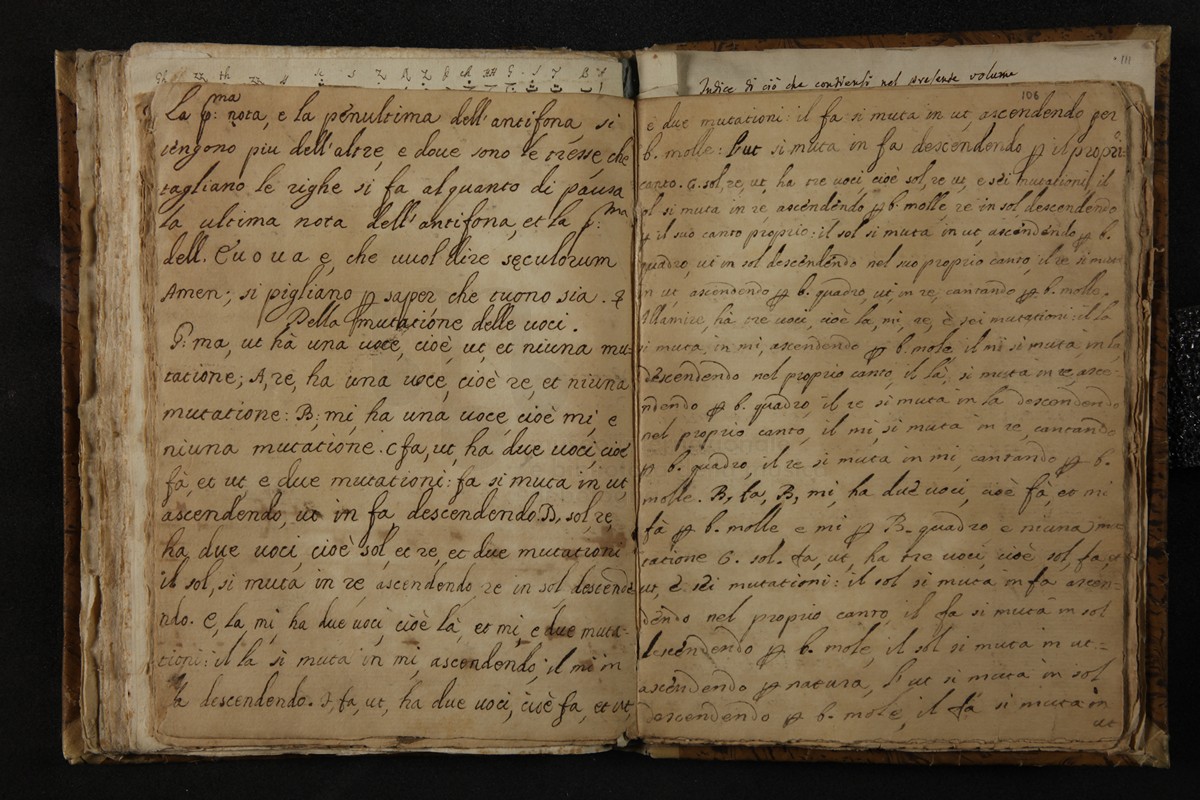 La p:ma nota, e la penultima dell'antifona si
tengono piu dell'altre, e doue sono le tresse che
tagliano le righe si fa alquanto di pausa
la ultima nota dell'antifona, et la p:ma
dell. Euouae, che uuol dire sęculorum
Amen; si pigliano p saper che tuono sia.
Della mutatióne delle uoci.
G: ma, ut hà una uoce, cioè, ut, et niuna mu=
tatione; A, re, ha una uoce, cioè re, et niuna
mutatione: B, mi, ha una uoce, cioè mi, e
niuna mutatione. C fa, ut, ha due uoci, cioè
fà, et ut, e due mutationi: fa si muta in ut,
ascendendo, ut in fa descendendo. D, sol, re,
ha due uoci, cioè sol, et re, et due mutationi
il sol, si muta in re, ascendendo, re in sol descende
ndo. E, la mi, ha due uoci, cioè là, et mi, e due muta-
tioni: il la si muta in mi, ascendendo, il mi in
la descendendo. F, fa, ut, ha due uoci, cioè fa, et ut,
Indice di ciò che contiensi nel presente volume
111
106
è due mutationi: il fa si muta in ut, ascendendo per
b. molle: l'ut si muta in fa descendendo p il propri:o
canto. G. sol, re, ut, ha tre uoci, cioè sol, re ut, e sei mutationi, il
sol si muta in re, ascendendo p b. molle, re in sol, descendendo
p il suo canto proprio: il sol si muta in ut, ascendendo p b.
quadro, ut in sol descendendo nel suo proprio canto, il re si muta
in ut, ascendendo p b. quadro, ut, in re, cantando p b. molle.
Alamire, hà tre uoci, cioè la, mi, re, è sei mutationi: il la
si muta in mi, ascendendo p b. mole, il mi si muta in la
descendendo nel proprio canto, il là, si muta in re, asce-
ndendo p b. quadro, il re si muta in la descendendo
nel proprio canto, il mi, si muta in re, cantando
p b. quadro, il re si muta in mi, cantando p b.
molle. B, fa, B, mi, ha due uoci, cioè fà, et mi
fà p b. molle e mi p B. quadro e niuna mu
tatione C. sol. fa, ut, ha tre uoci, cioè sol, fa, ut
ut, è sei mutationi: il sol si muta in fa ascen-
dendo nel proprio canto, il fa si muta in sol
descendendo p b. mole, il sol si muta in ut,-
ascendendo p natura, l'ut si muta in sol
descendendo p b. mole, il fà si muta in
ut